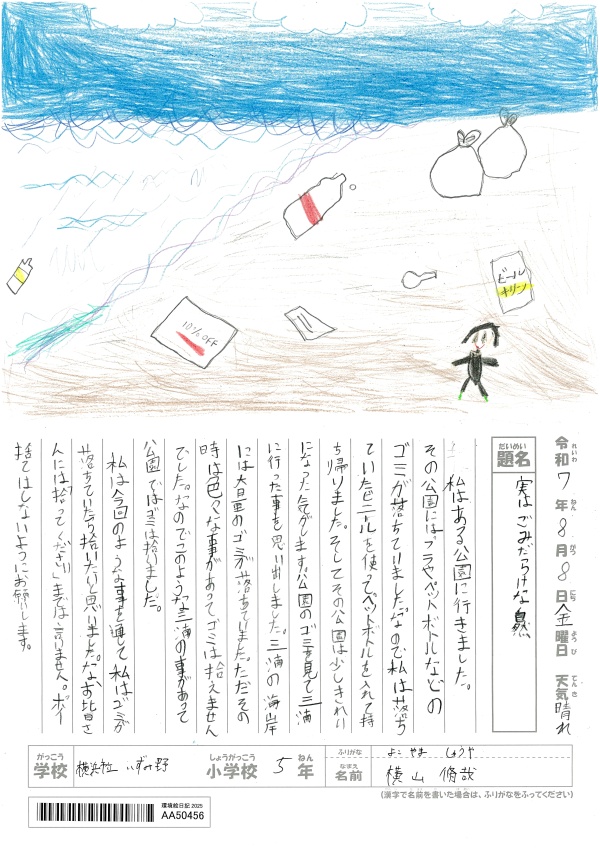 ビール
キリン
10%OFF
令和7年8月8日金曜日 天気晴れ
れいわ ねん がつ にち ようび てんき
だいめい
題名
実はごみだらけな自然
私はある公園に行きました。
その公園にはプラやペットボトルなどの
ゴミが落ちていました。なので私は落ち
ていたビニールを使ってペットボトルを入れて持
ち帰りました。そしてその公園は少しきれい
になった気がします。公園のゴミを見て三浦
に行った事も思い出しました。三浦の海岸
には大量のゴミが落ちていました。ただその
時は色々な事があってゴミは拾えません
でした。なのでこのような三浦の事があって
公園ではゴミは拾いました。
私は今回のような事を通して私はゴミが
落ちていたら拾いたいと思いました。なお皆さ
んには「拾ってください」までは言いません。ポイ
捨てはしないようにお願します。
がっこう
学校
横浜市立 いずみ野
しょうがっこう
小学校
5
ねん
年
ふりがな
よこ やま しょうや
なまえ
名前
横山 翛哉
(漢字で名前を書いた場合は、ふりがなをふってください)
環境絵日記 2025
AA50456